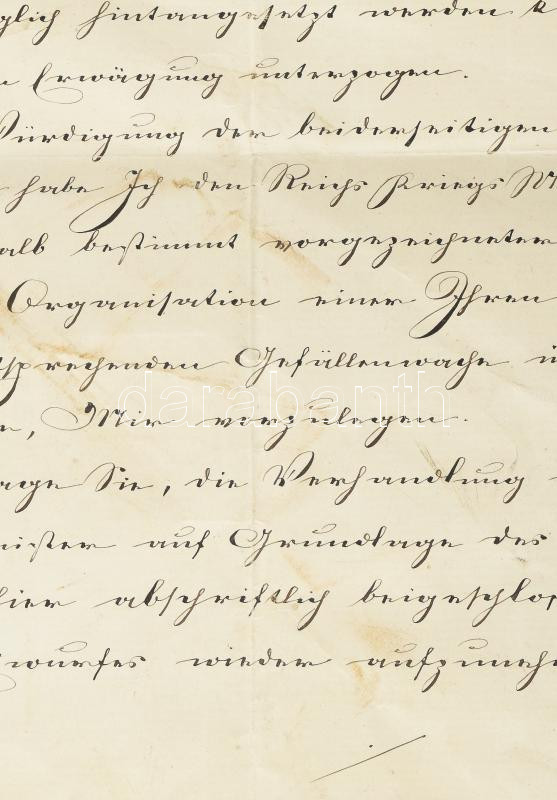 glich hintangesetzt werden
n Erwägung unterzogen.
Würdigung der beiderseitigen
habe Ich den Reichs Kriegs M
alb bestimmt vorgezeichneter
Organisation einer Ihren
sprechenden Gefällenwache ü
darabanth
e, Mir vorzulegen.
age Sie, die Verhandlung
nister auf Grundlage des
hier abschriftlich beigeschlos
wurfes wieder aufzuneh